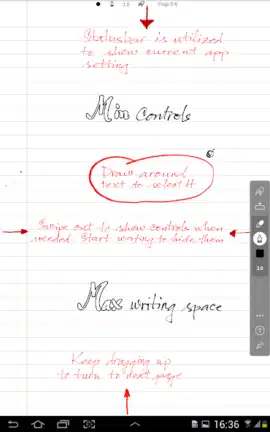 1.0
Page: 5/5
Statusbar is utilized
to show current app
setting
Min controls
Draw around
text to select it
Swipe out to show controls when
needed. Start writing to hide them
1.0
Max writing space
Keep dragging up
to turn to next page
16:36